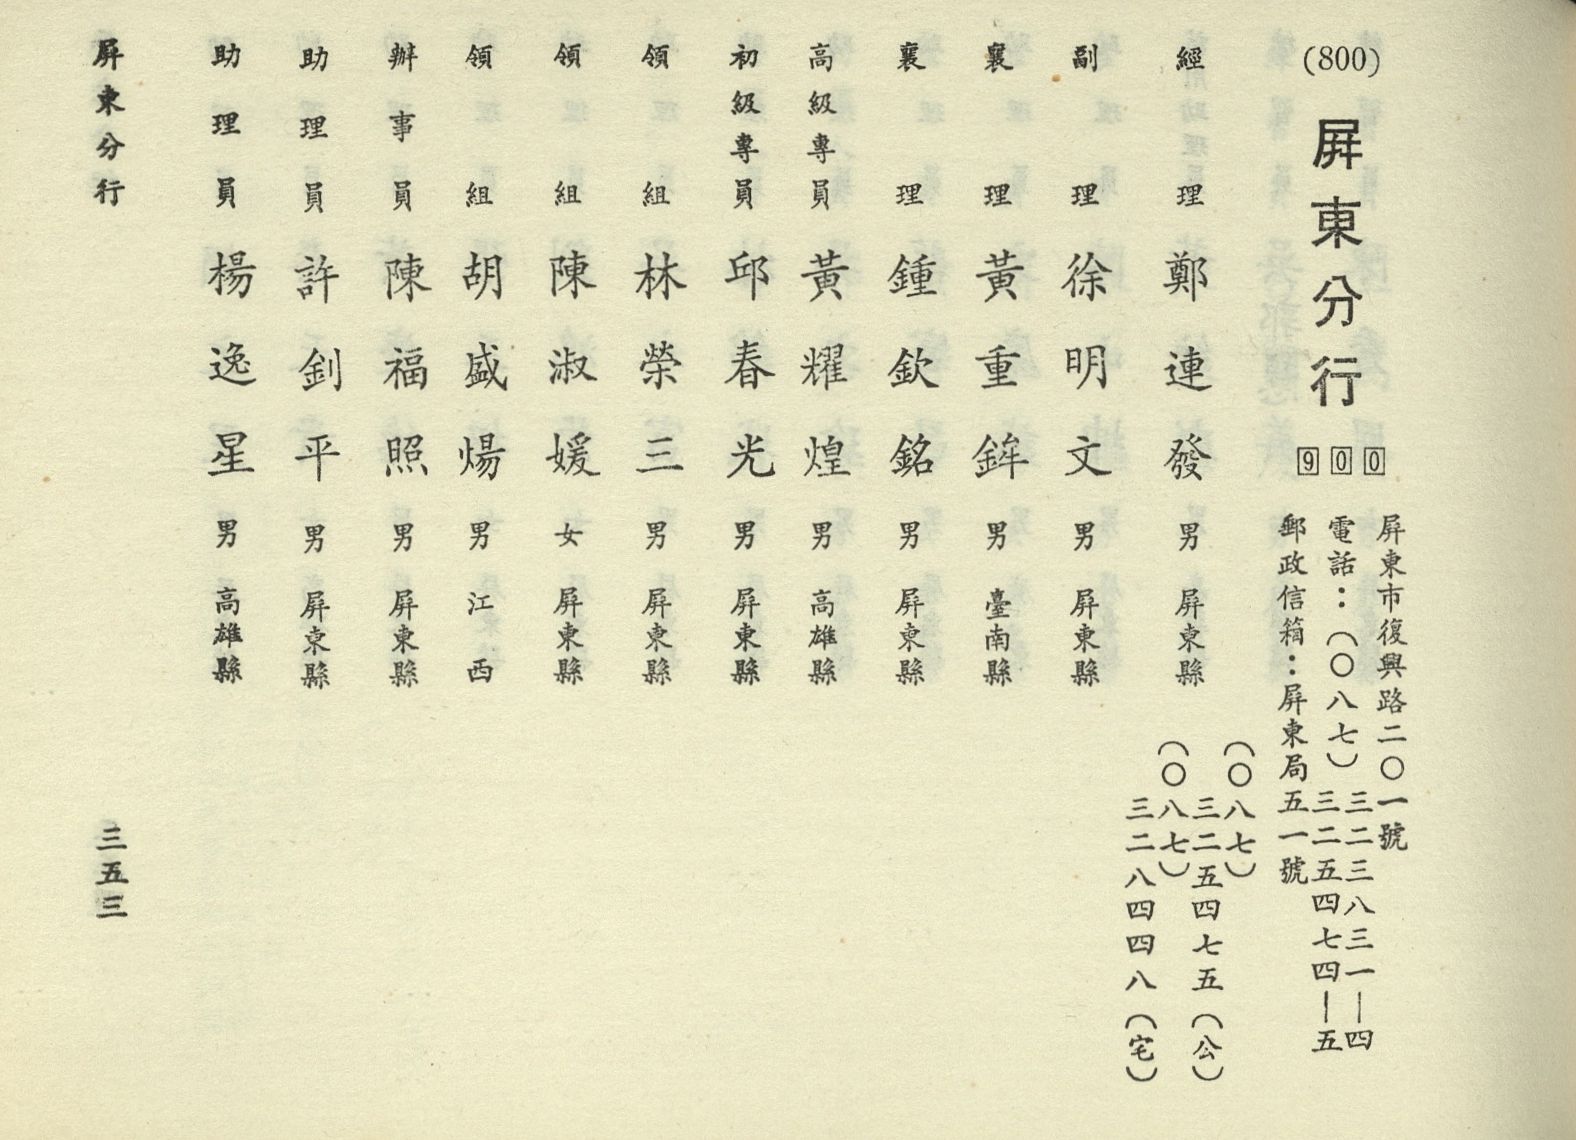 (800)
屏東分行
900
屏東市復興路二〇一號
電話：（〇八七）三二三八三一—四
三二五四七四—五
郵政信箱：屏東局五一號
經理 鄭連發 男 屏東縣
（〇八七）三二五四七五（公）
（〇八七）三二八四四八（宅）
副理 徐明文 男 屏東縣
襄理 黃重鉾 男 臺南縣
襄理 鍾欽銘 男 屏東縣
高級專員 黃耀煌 男 高雄縣
初級專員 邱春光 男 屏東縣
領組 林榮三 男 屏東縣
領組 陳淑媛 女 屏東縣
領組 胡盛煬 男 江西
辦事員 陳福照 男 屏東縣
助理員 許釗平 男 屏東縣
助理員 楊逸星 男 高雄縣
屏東分行
三五三